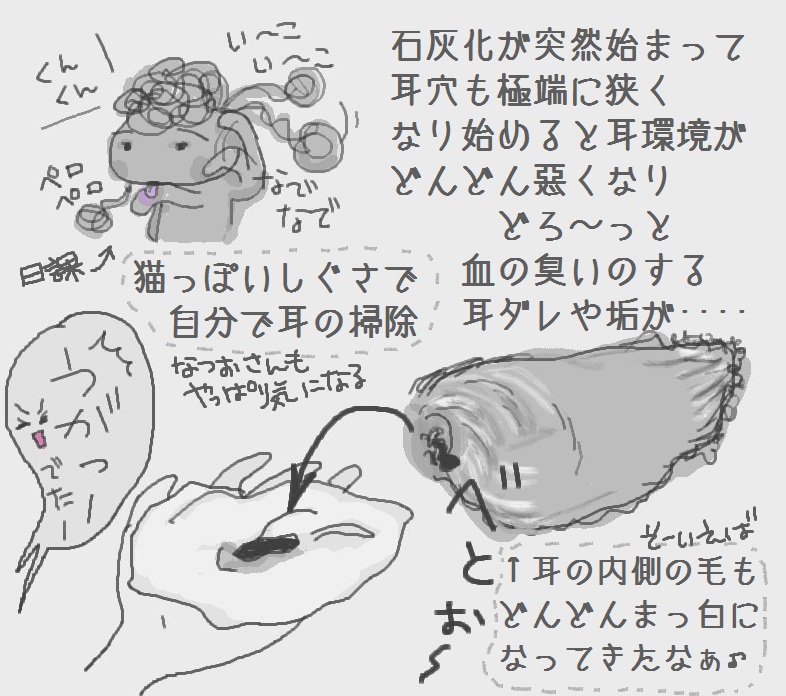 石灰化が突然始まって
耳穴も極端に狭く
なり始めると耳環境が
どんどん悪くなり
どろ～っと
血の臭いのする
耳ダレや垢が‥‥
い〜こ
い〜こ
くん
くん
ペロ
ペロ
なで
なで
日課
猫っぽいしぐさで
自分で耳の掃除
なつおさんも
やっぱり気になる
でたー
べ
と
お〜
そーいえば
↑耳の内側の毛も
どんどんまっ白に
なってきたなぁ♫